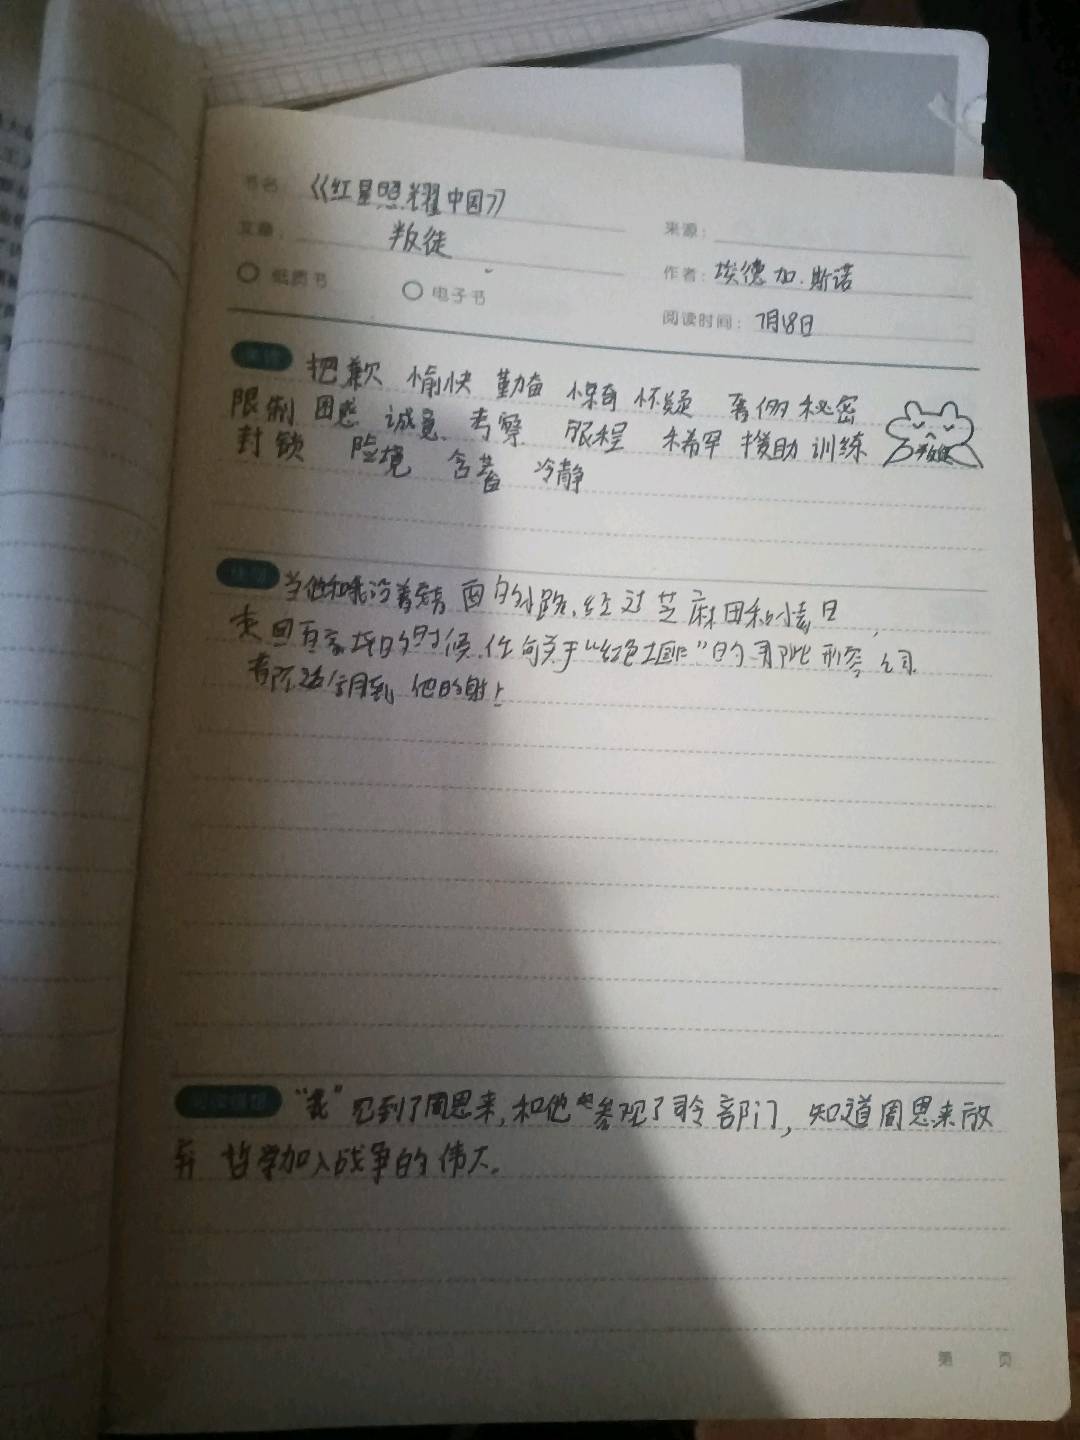 书名：《红星照耀中国》
文章： 叛徒
来源：
纸质书 电子书
作者：埃德加.斯诺
阅读时间：7月18日
好词 抱歉 愉快 勤奋 怀疑 秘密
限制 困惑 诚意 考察 服程 稀罕 援助 训练
叛徒
封锁 险境 含蓄 冷静
佳句 当他和我沿着 的小路,经过芝麻田和
走回百家坪的时候,任何关于“红色土匪”的 形容词
都
阅读感想 “我”见到了周恩来,和他 参观了司令部门,知道周恩来放
弃 哲学加入战争的伟大。
第 页